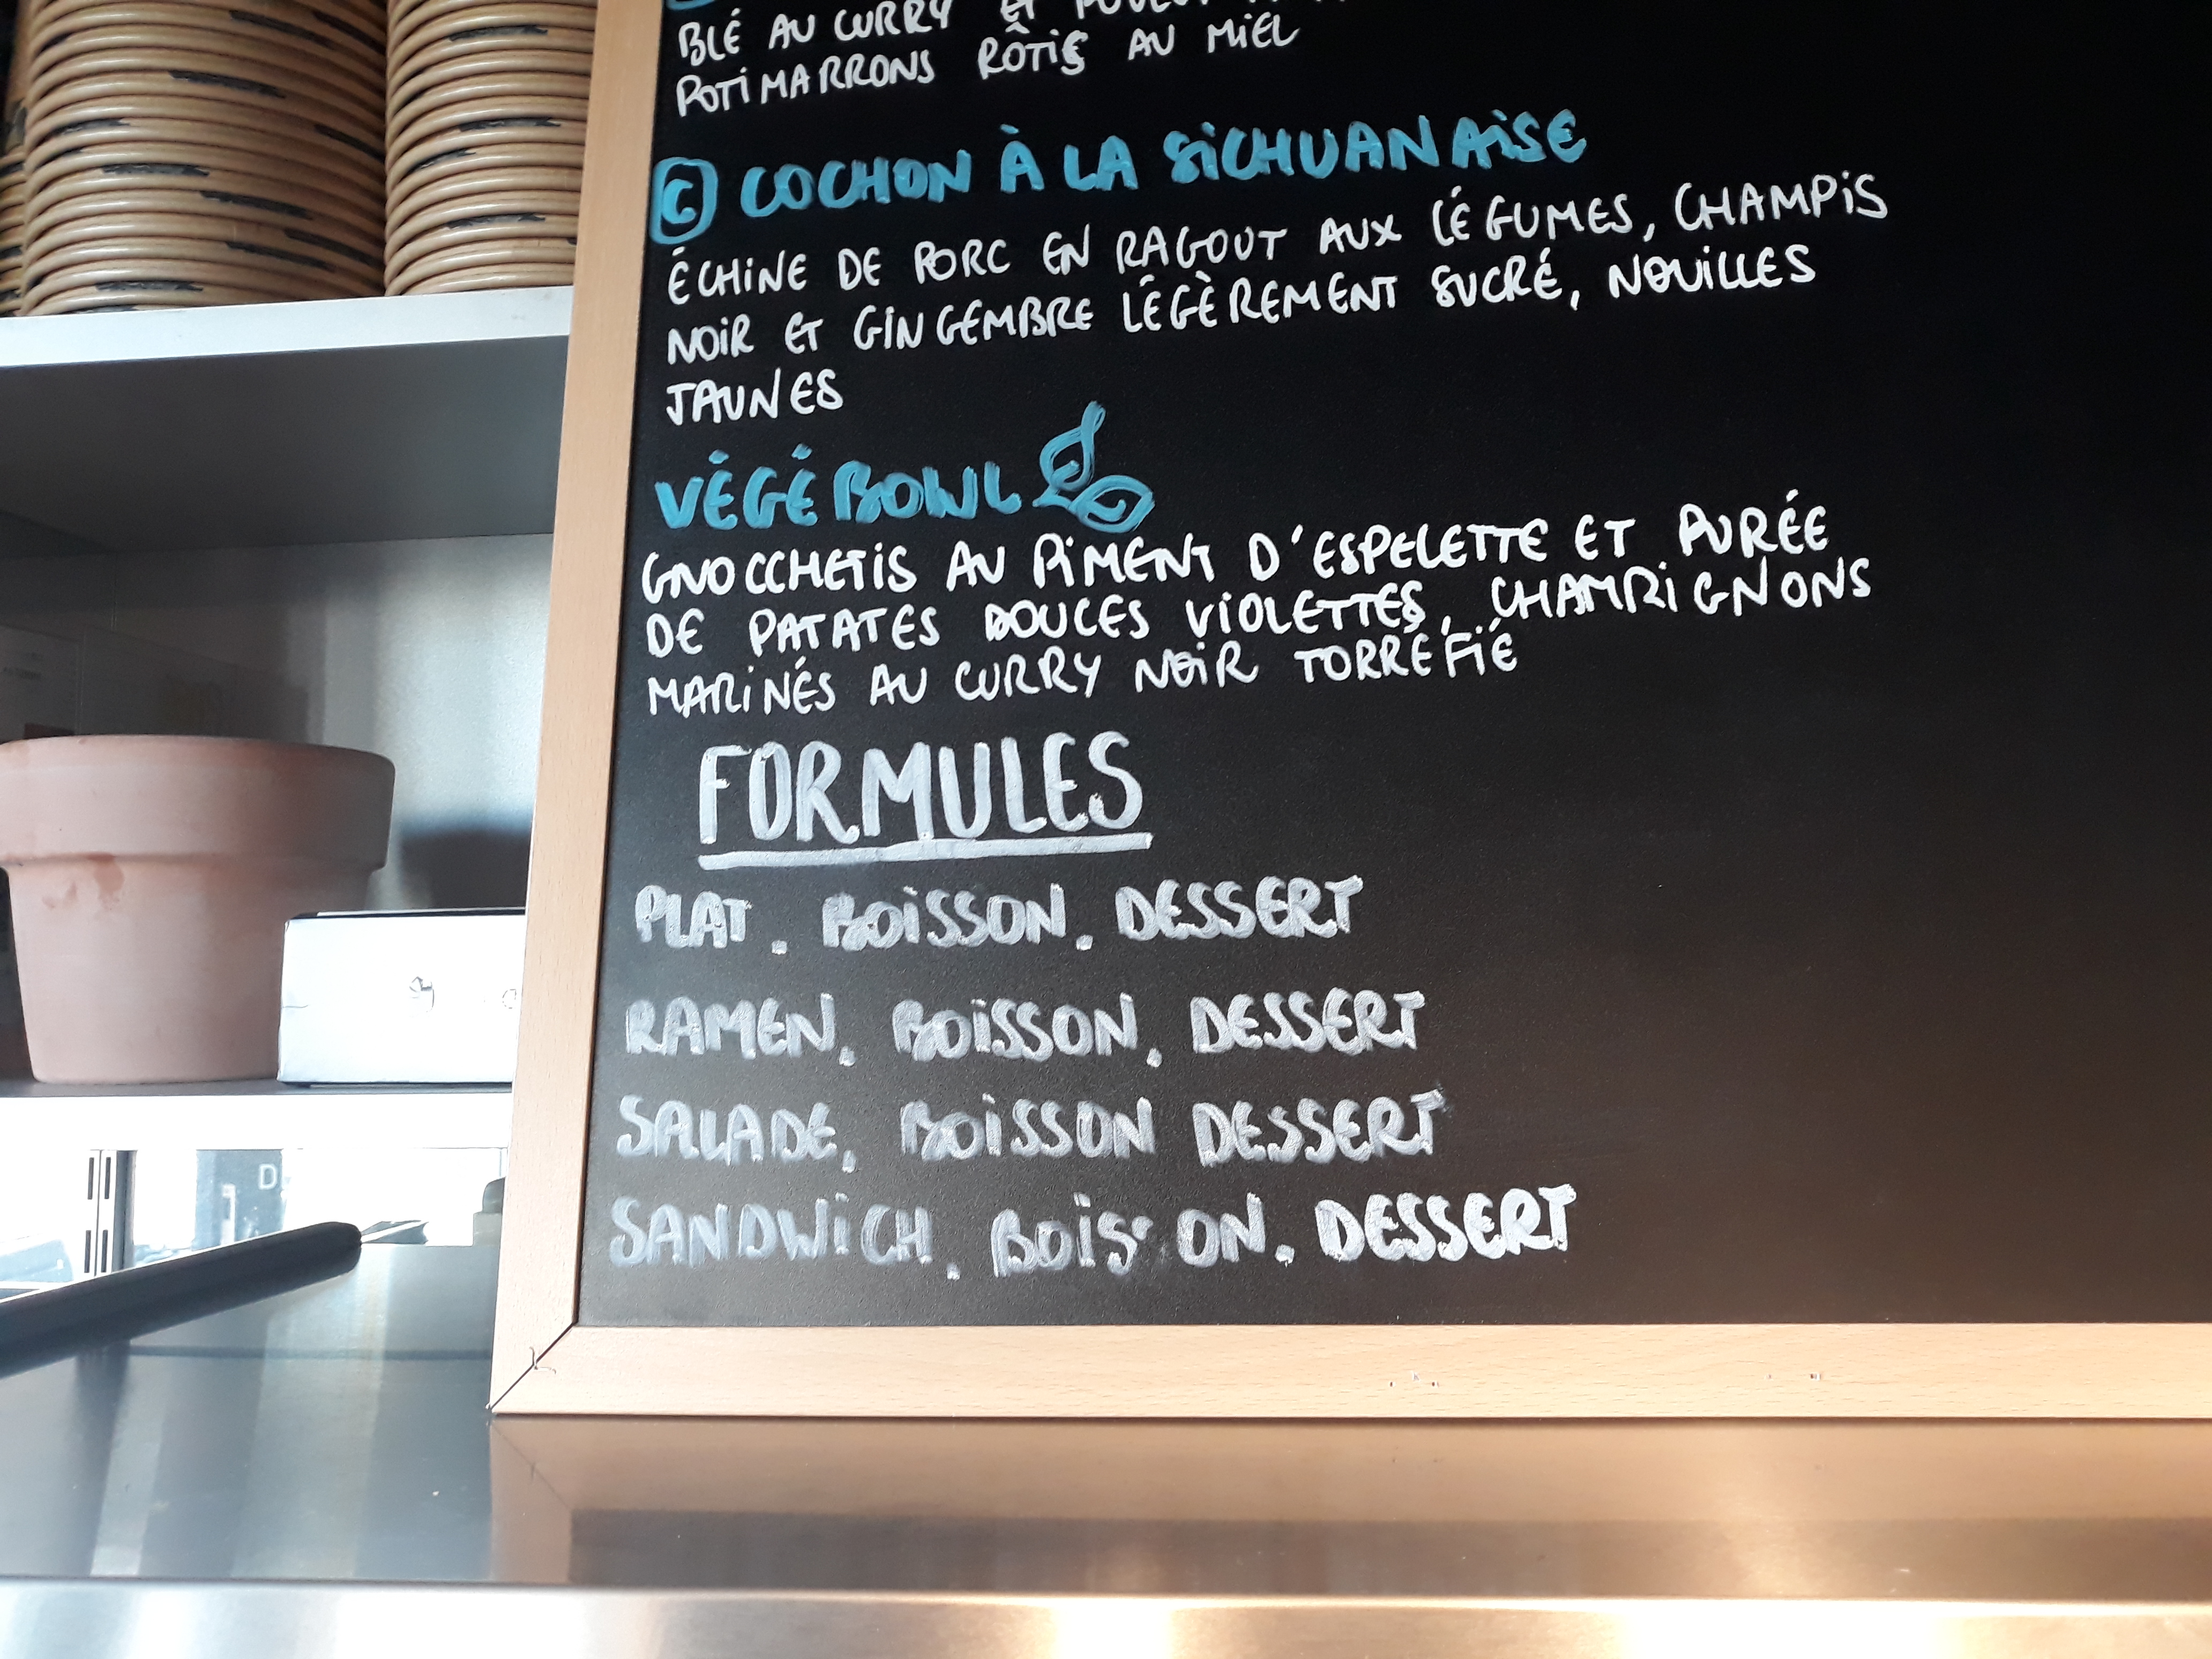 BLÉ AU CURRY ET POULET
POTIMARRONS RÔTIS AU MIEL
C COCHON À LA SICHUANAISE
ÉCHINE DE PORC EN RAGOUT AUX LÉGUMES, CHAMPIS
NOIR ET GINGEMBRE LÉGÈREMENT SUCRÉ, NOUILLES
JAUNES
VÉGÉ BOWL
GNOCCHETIS AU PIMENT D'ESPELETTE ET PURÉE
DE PATATES DOUCES VIOLETTES, CHAMPIGNONS
MARINÉS AU CURRY NOIR TORRÉFIÉ
FORMULES
PLAT. BOISSON. DESSERT
RAMEN. BOISSON. DESSERT
SALADE. BOISSON DESSERT
SANDWICH. BOISSON. DESSERT